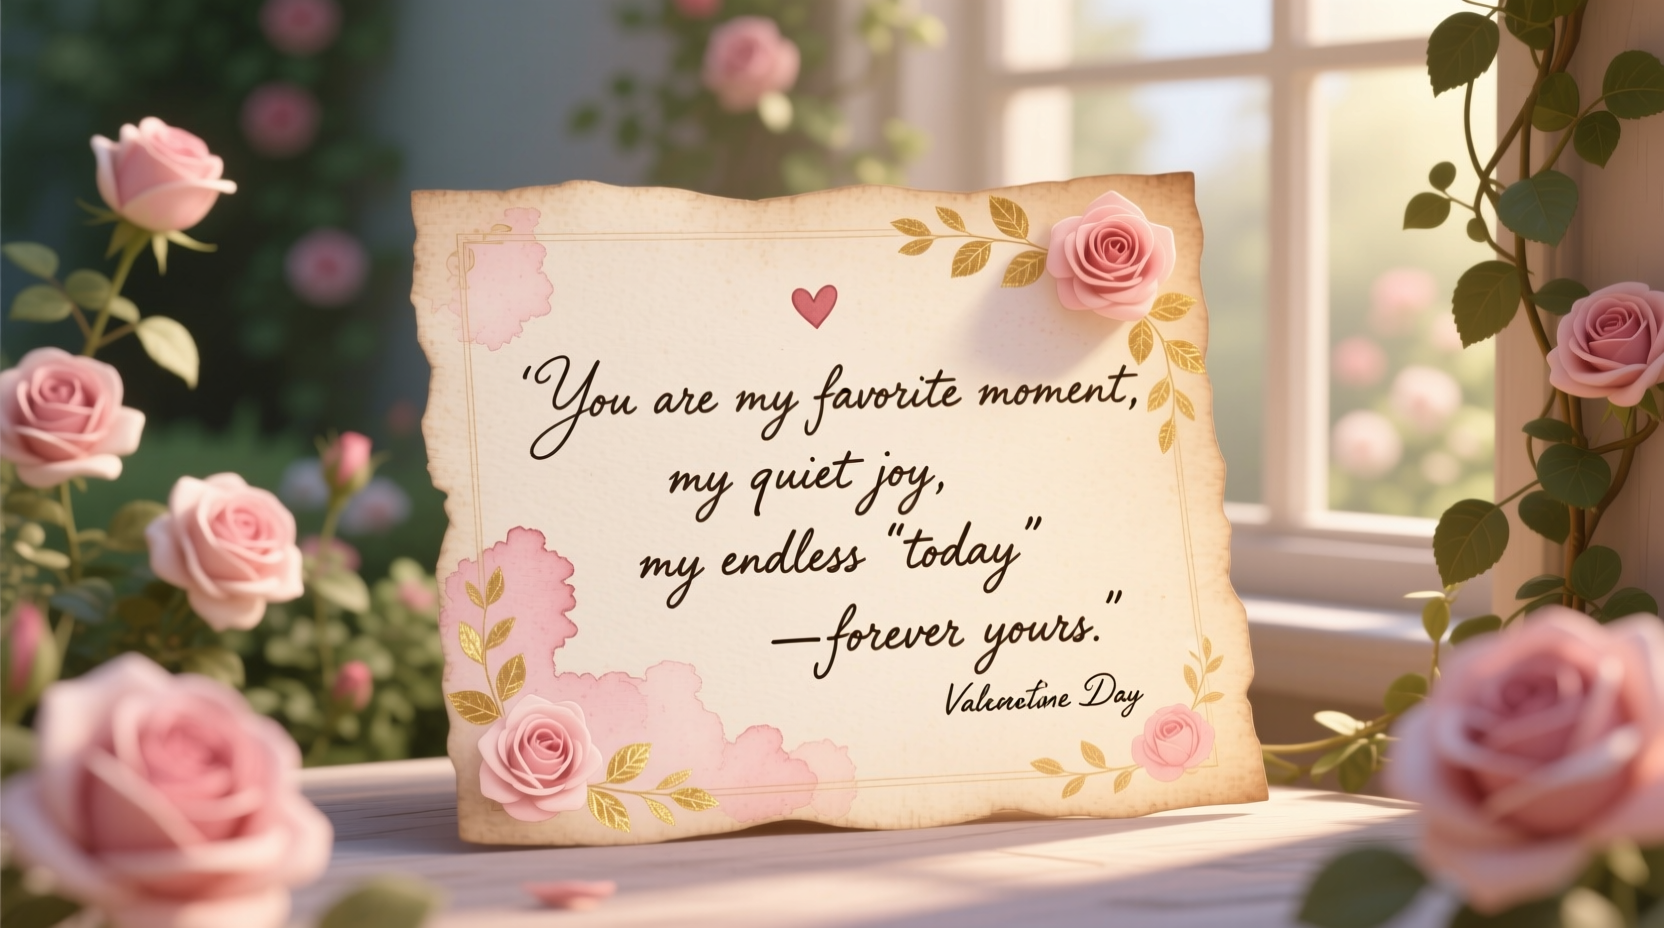 ‘You are my favorite moment,
my quiet joy,
my endless “today”
—forever yours.”
Day